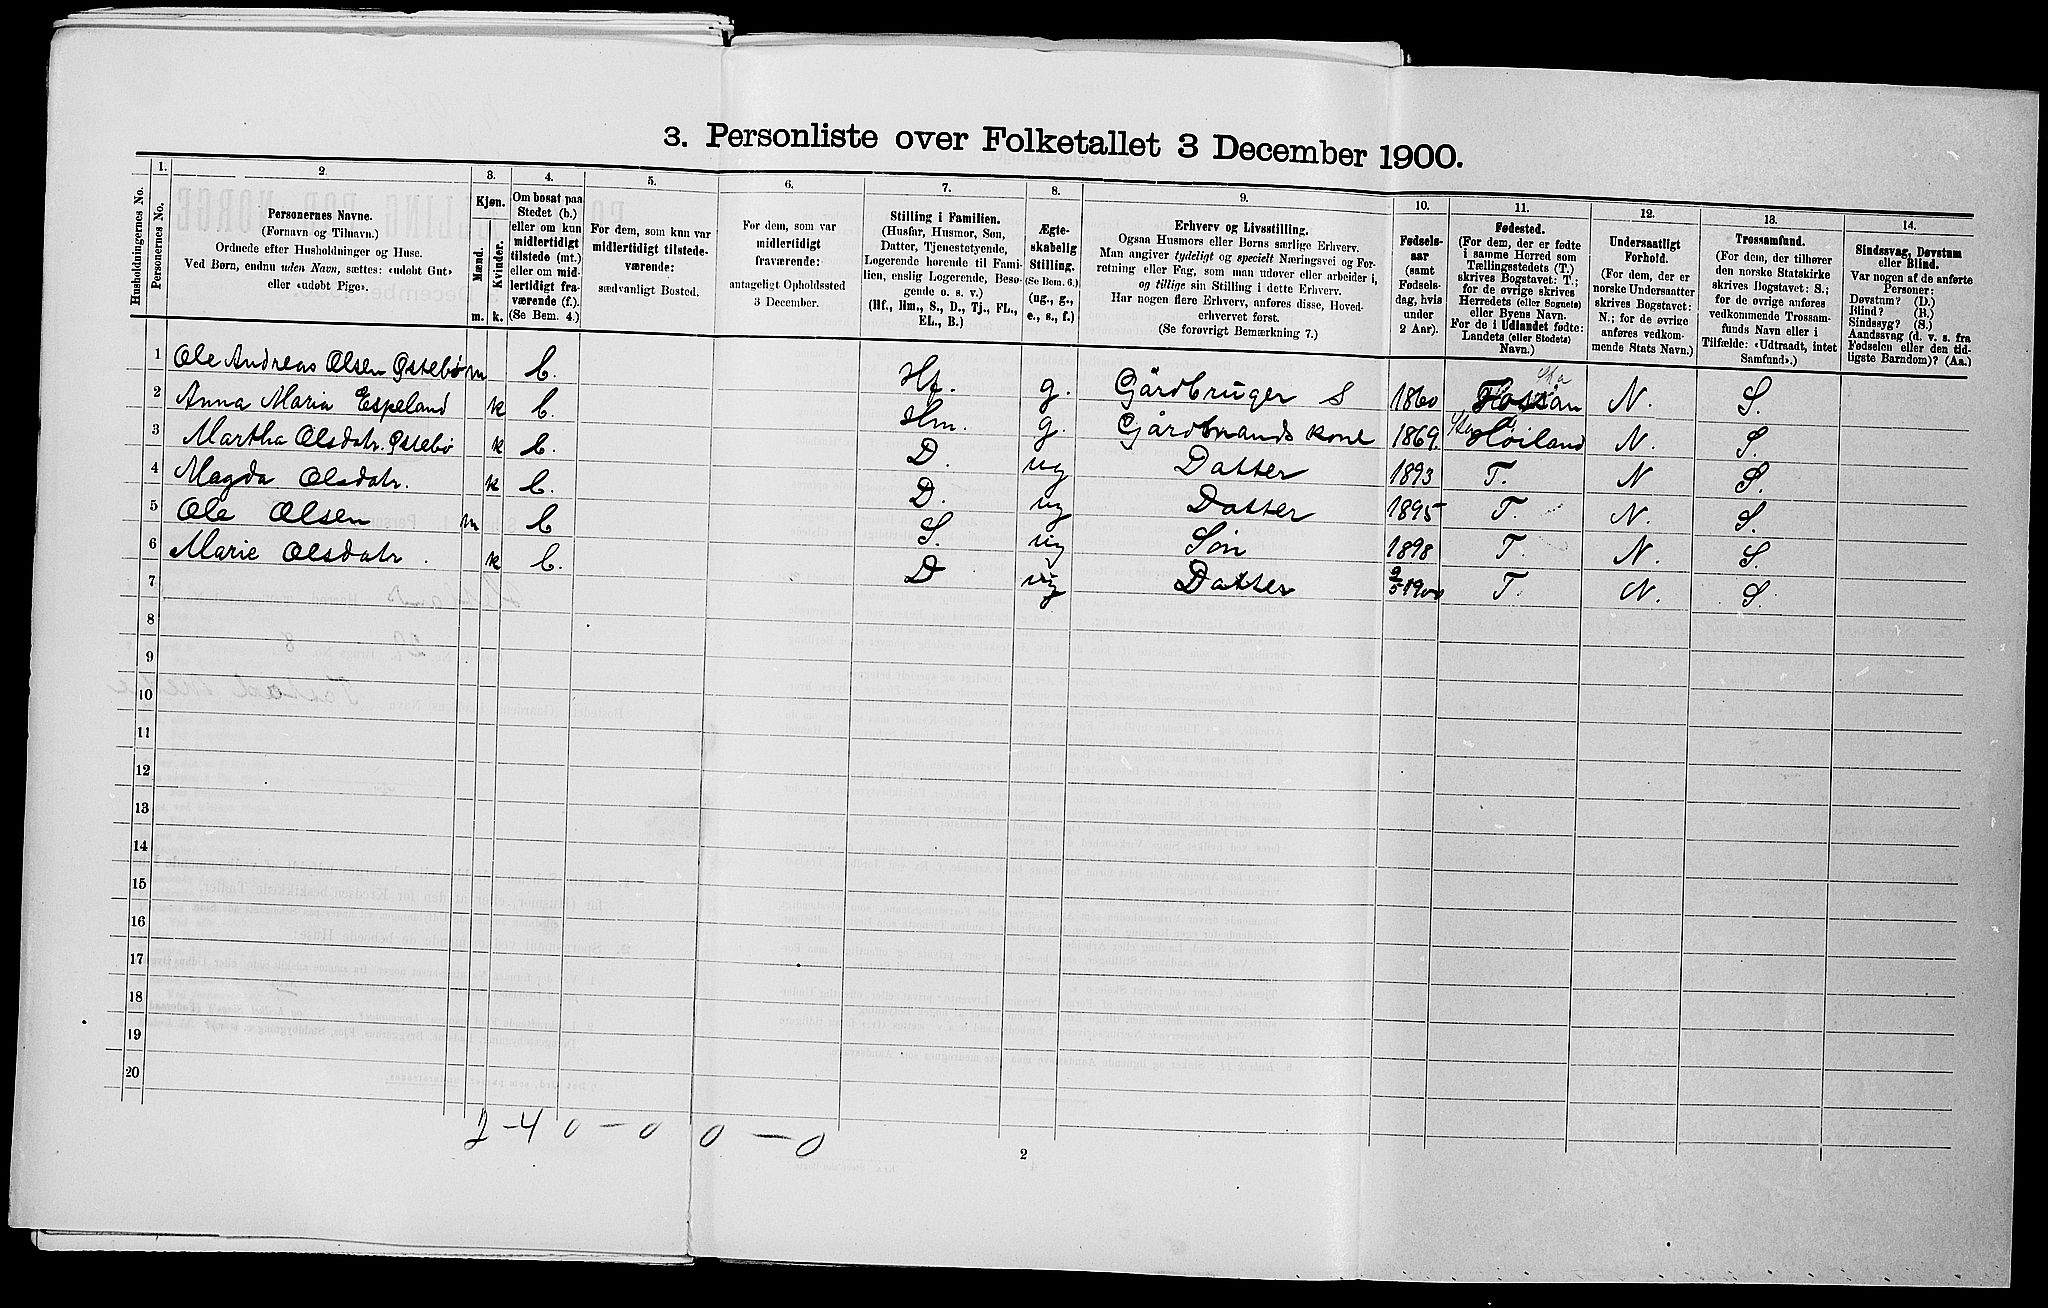 3. Personliste over Folketallet 3 December 1900.
1. 2. 3. 4. 5. 6. 7. 8. 9. 10. 11. 12. 13. 14.
Husholdningernes No.
Personernes No.
Personernes Navne.
(Fornavn og Tilnavn.)
Ordnede efter Husholdninger og Huse.
Ved Børn, endnu uden Navn, sættes: «udøbt Gut»
eller «udøbt Pige».
Kjøn.
Mænd.
Kvinder.
m. k.
Om bosat paa
Stedet (b.)
eller om kun
midlertidigt
tilstede (mt.)
eller om mid-
lertidigt fra-
værende (f.).
(Se Bem. 4.)
For dem, som kun var
midlertidigt tilstede-
værende:
sædvanligt Bosted.
For dem, som var
midlertidigt
fraværende:
antageligt Opholdssted
3 December.
Stilling i Familien.
(Husfar, Husmor, Søn,
Datter, Tjenestetyende,
Logerende hørende til Fami-
lien, enslig Logerende, Besø-
gende o. s. v.)
(Hf., Hm., S., D., Tj., FL.,
EL., B.)
Ægte-
skabelig
Stilling.
(Se Bem. 6.)
(ug., g.,
e., s., f.)
Erhverv og Livsstilling.
Ogsaa Husmors eller Børns særlige Erhverv.
Man angiver tydeligt og specielt Næringsvei og For-
retning eller Fag, som man udøver eller arbeider i,
og tillige sin Stilling i dette Erhverv.
Har nogen flere Erhverv, anføres disse, Hoved-
erhvervet først.
(Se forøvrigt Bemærkning 7.)
Fødsels-
aar
(samt
Fødsels-
dag, hvis
under
2 Aar).
Fødested.
(For dem, der er fødte
i samme Herred som
Tællingsstedets (T.)
skrives Bogstavet: T.;
for de øvrige skrives
Herredets (eller Sognets)
eller Byens Navn.
For de i Udlandet fødte:
Landets (eller Stedets)
Navn.)
Undersaatligt
Forhold.
(For dem, der er
norske Undersaatter
skrives Bogstavet:
N.; for de øvrige
anføres vedkom-
mende Stats Navn.)
Trossamfund.
(For dem, der tilhører
den norske Statskirke
skrives Bogstavet: S.;
for de øvrige anføres
vedkommende Trossam-
funds Navn eller i
Tilfælde: «Udtraadt, intet
Samfund».)
Sindssvag, Døvstum
eller Blind.
Var nogen af de anførte
Personer:
Døvstum? (D.)
Blind? (B.)
Sindssyg? (S.)
Aandssvag (d. v. s. fra
Fødselen eller den tid-
ligste Barndom)? (Aa.)
1 Ole Andreas Olsen Østebø m b. Hf. g. Gårdbruger S 1860 N. S.
2 Anna Maria Espeland k b. Hm. g. Gårdmands kone 1869. Høiland N. S.
3 Martha Olsdatr. Østebø k b. D. ug Datter 1893 T. N S.
4 Magda Olsdatr. k b. D. ug Datter 1895 T. N. S.
5 Ole Olsen m b S. ug Søn 1898 T. N. S.
6 Marie Olsdatr. k b. D ug Datter 9/5 1900 T. N. S.
7
8
9
10
11
12
13
14
15
16
17
18
19
20
2-4 0-0 0-0
2